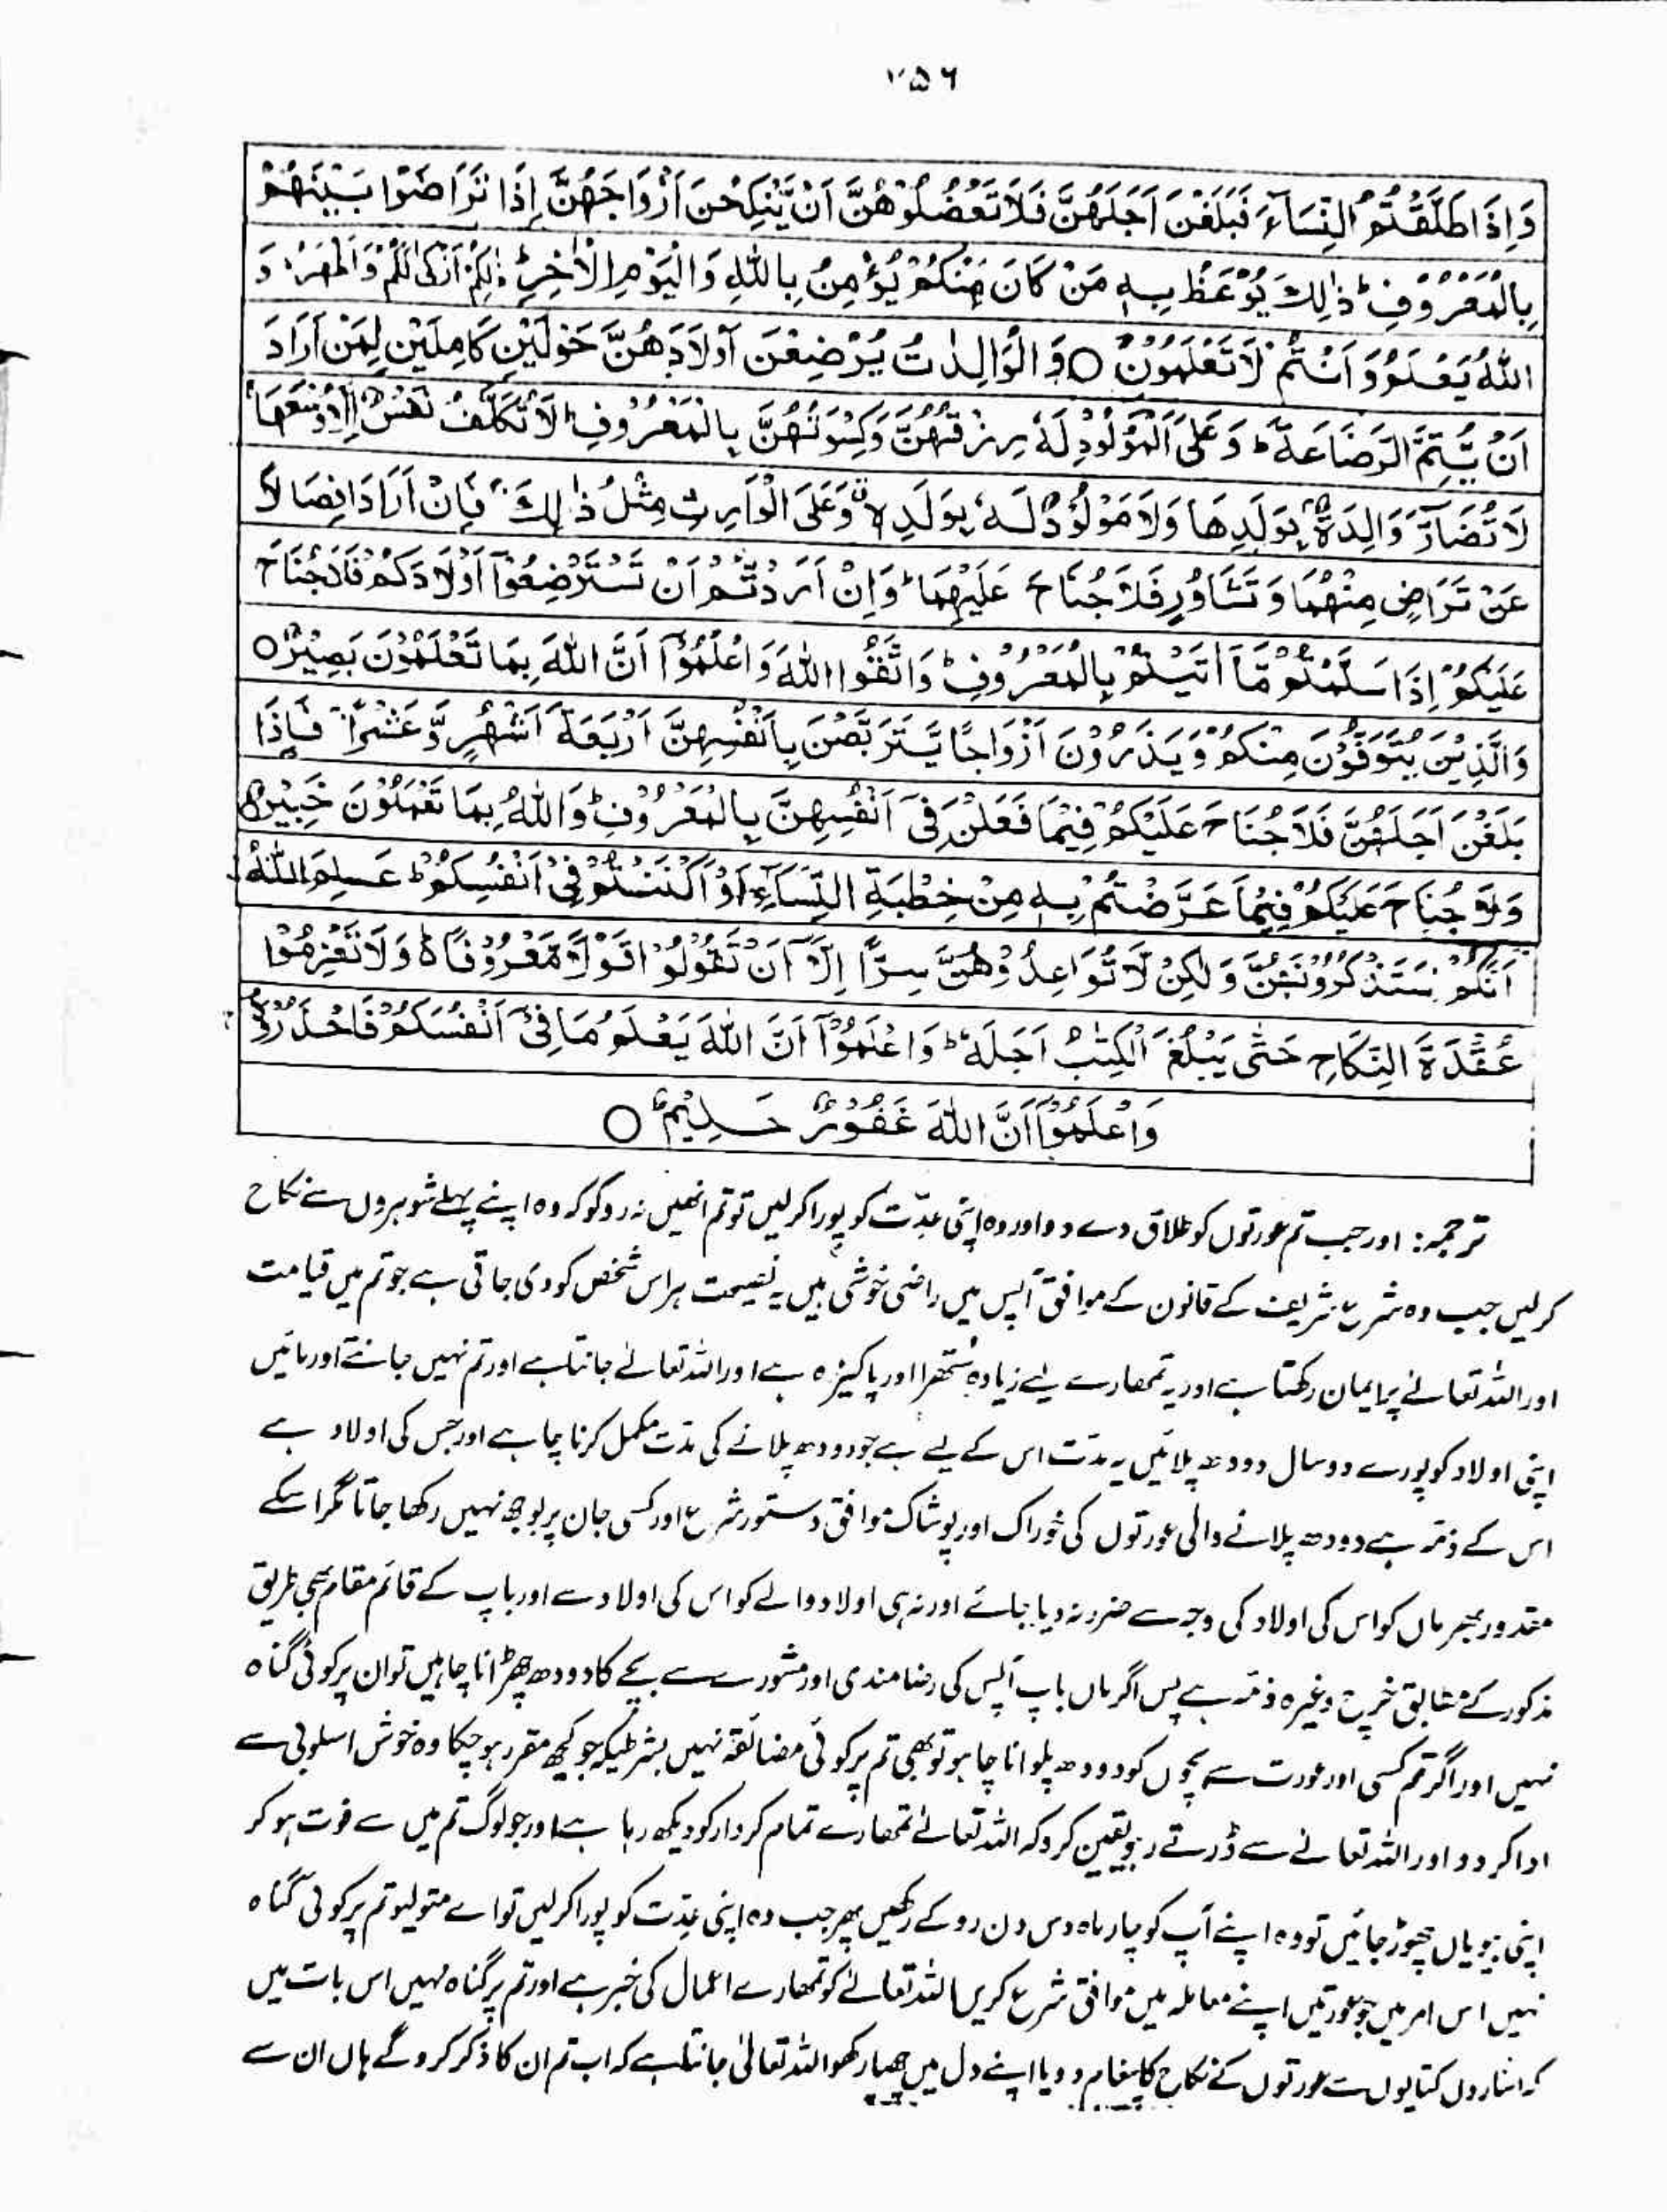 ۷۵۶
وَاِذَا طَلَّقْتُمُ النِّسَآءَ فَبَلَغْنَ اَجَلَهُنَّ فَلَا تَعْضُلُوْهُنَّ اَنْ يَّنْكِحْنَ اَزْوَاجَهُنَّ اِذَا تَرَاضَوْا بَيْنَهُمْ
بِالْمَعْرُوْفِ ؕ ذٰلِكَ يُوْعَظُ بِهٖ مَنْ كَانَ مِنْكُمْ يُؤْمِنُ بِاللهِ وَالْيَوْمِ الْاٰخِرِ ؕ ذٰلِكُمْ اَزْكٰى لَكُمْ وَاَطْهَرُ ؕ وَ
اللهُ يَعْلَمُ وَاَنْتُمْ لَا تَعْلَمُوْنَ ○ وَالْوَالِدٰتُ يُرْضِعْنَ اَوْلَادَهُنَّ حَوْلَيْنِ كَامِلَيْنِ لِمَنْ اَرَادَ
اَنْ يُّتِمَّ الرَّضَاعَةَ ؕ وَعَلَى الْمَوْلُوْدِ لَهٗ رِزْقُهُنَّ وَكِسْوَتُهُنَّ بِالْمَعْرُوْفِ ؕ لَا تُكَلَّفُ نَفْسٌ اِلَّا وُسْعَهَا ۚ
لَا تُضَآرَّ وَالِدَةٌۢ بِوَلَدِهَا وَلَا مَوْلُوْدٌ لَّهٗ بِوَلَدِهٖ ۗ وَعَلَى الْوَارِثِ مِثْلُ ذٰلِكَ ۚ فَاِنْ اَرَادَا فِصَالًا
عَنْ تَرَاضٍ مِّنْهُمَا وَتَشَاوُرٍ فَلَا جُنَاحَ عَلَيْهِمَا ؕ وَاِنْ اَرَدْتُّمْ اَنْ تَسْتَرْضِعُوْٓا اَوْلَادَكُمْ فَلَا جُنَاحَ
عَلَيْكُمْ اِذَا سَلَّمْتُمْ مَّآ اٰتَيْتُمْ بِالْمَعْرُوْفِ ؕ وَاتَّقُوا اللهَ وَاعْلَمُوْٓا اَنَّ اللهَ بِمَا تَعْلَمُوْنَ بَصِيْرٌ ○
وَالَّذِيْنَ يُتَوَفَّوْنَ مِنْكُمْ وَيَذَرُوْنَ اَزْوَاجًا يَّتَرَبَّصْنَ بِاَنْفُسِهِنَّ اَرْبَعَةَ اَشْهُرٍ وَّعَشْرًا ۚ فَاِذَا
بَلَغْنَ اَجَلَهُنَّ فَلَا جُنَاحَ عَلَيْكُمْ فِيْمَا فَعَلْنَ فِىْٓ اَنْفُسِهِنَّ بِالْمَعْرُوْفِ ؕ وَاللهُ بِمَا تَعْمَلُوْنَ خَبِيْرٌ
وَلَا جُنَاحَ عَلَيْكُمْ فِيْمَا عَرَّضْتُمْ بِهٖ مِنْ خِطْبَةِ النِّسَآءِ اَوْ اَكْنَنْتُمْ فِىْٓ اَنْفُسِكُمْ ؕ عَلِمَ اللهُ
اَنَّكُمْ سَتَذْكُرُوْنَهُنَّ وَلٰكِنْ لَّا تُوَاعِدُوْهُنَّ سِرًّا اِلَّآ اَنْ تَقُوْلُوْا قَوْلًا مَّعْرُوْفًا ؕ وَلَا تَعْزِمُوْا
عُقْدَةَ النِّكَاحِ حَتّٰى يَبْلُغَ الْكِتٰبُ اَجَلَهٗ ؕ وَاعْلَمُوْٓا اَنَّ اللهَ يَعْلَمُ مَا فِىْٓ اَنْفُسِكُمْ فَاحْذَرُوْهُ
وَاعْلَمُوْٓا اَنَّ اللهَ غَفُوْرٌ حَلِيْمٌ ○
ترجمہ: اور جب تم عورتوں کو طلاق دے دو اور وہ اپنی عدّت کو پورا کرلیں تو تم انھیں نہ روکو کہ وہ اپنے پہلے شوہروں سے نکاح
کرلیں جب وہ شرع شریف کے قانون کے موافق آپس میں راضی خوشی ہیں یہ نصیحت ہر اس شخص کو دی جاتی ہے جو تم میں قیامت
اور اللہ تعالےٰ پر ایمان رکھتا ہے اور یہ تمھارے لیے زیادہ ستھرا اور پاکیزہ ہے اور اللہ تعالےٰ جانتا ہے اور تم نہیں جانتے اور مائیں
اپنی اولاد کو پورے دو سال دودھ پلائیں یہ مدّت اس کے لیے ہے جو دودھ پلانے کی مدّت مکمل کرنا چاہے اور جس کی اولاد ہے
اس کے ذمّہ ہے دودھ پلانے والی عورتوں کی خوراک اور پوشاک موافق دستور شرع اور کسی جان پر بوجھ نہیں رکھا جاتا مگر اسکے
مقدور بھر ماں کو اس کی اولاد کی وجہ سے ضرر نہ دیا جائے اور نہ ہی اولاد والے کو اس کی اولاد سے اور باپ کے قائم مقام بھی طریق
مذکور کے مطابق خرچ وغیرہ ذمّہ ہے پس اگر ماں باپ آپس کی رضا مندی اور مشورے سے بچے کا دودھ چھڑانا چاہیں تو ان پر کوئی گناہ
نہیں اور اگر تم کسی اور عورت سے بچوں کو دودھ پلوانا چاہو تو بھی تم پر کوئی مضائقہ نہیں بشرطیکہ جو کچھ مقرر ہو چکا وہ خوش اسلوبی سے
ادا کر دو اور اللہ تعالےٰ سے ڈرتے رہو یقین کرو کہ اللہ تعالےٰ تمھارے تمام کردار کو دیکھ رہا ہے اور جو لوگ تم میں سے فوت ہو کر
اپنی بیویاں چھوڑ جائیں تو وہ اپنے آپ کو چار ماہ دس دن روکے رکھیں پھر جب وہ اپنی عدّت کو پورا کرلیں تو اے متولیو تم پر کوئی گناہ
نہیں اس امر میں جو عورتیں اپنے معاملہ میں موافق شرع کریں اللہ تعالےٰ کو تمھارے اعمال کی خبر ہے اور تم پر گناہ نہیں اس بات میں
کہ اشاروں کنایوں سے عورتوں کے نکاح کا پیغام دو یا اپنے دل میں چھپا رکھو اللہ تعالیٰ جانتا ہے کہ اب تم ان کا ذکر کرو گے ہاں ان سے